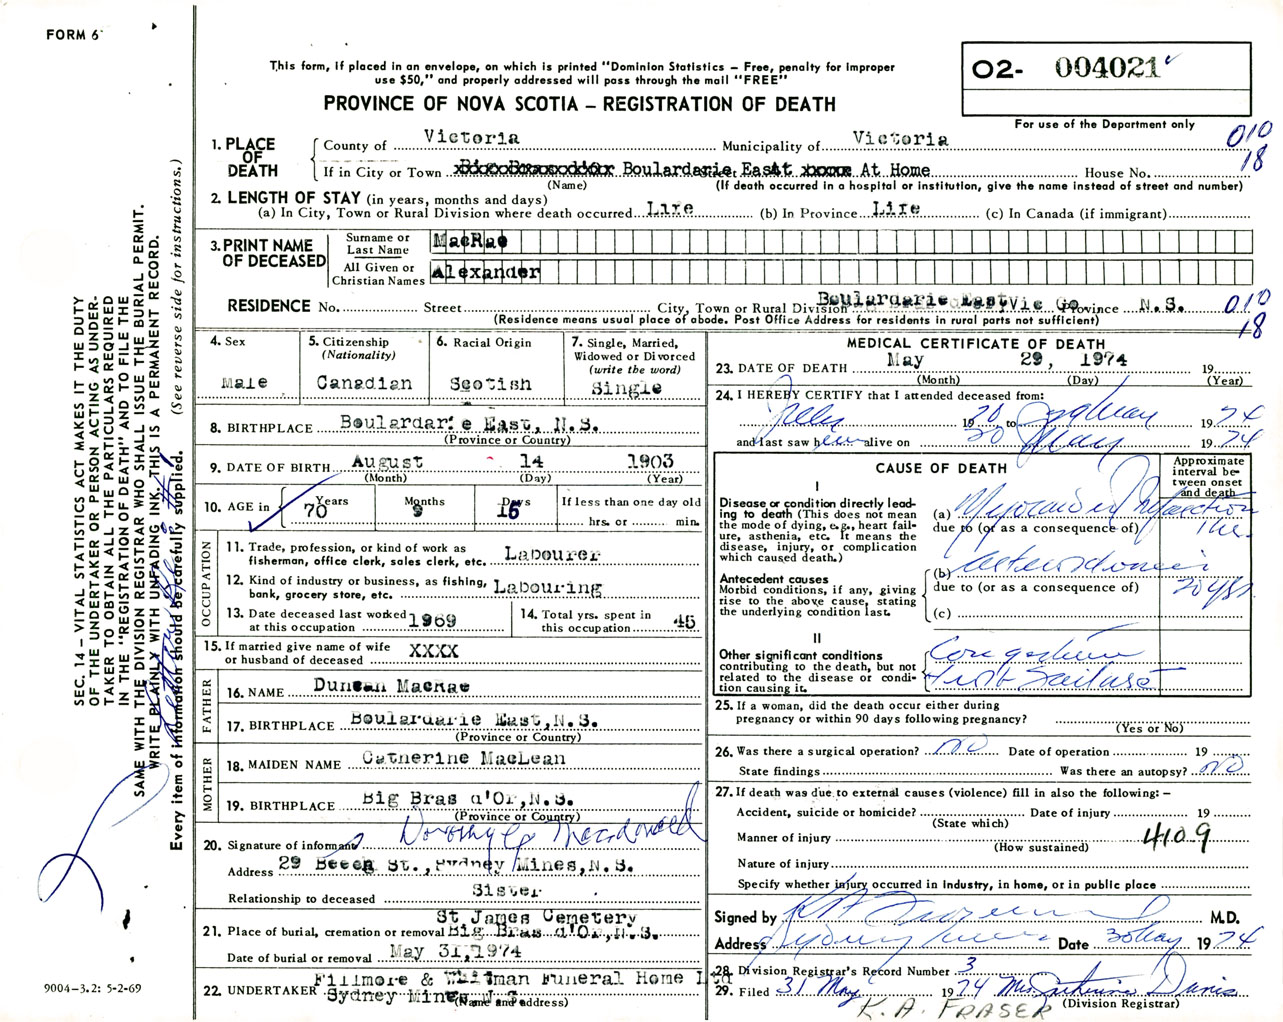 FORM 6
This form, if placed in an envelope, on which is printed "Dominion Statistics – Free, penalty for improper
use $50," and properly addressed will pass through the mail "FREE"
O2- 004021
For use of the Department only
PROVINCE OF NOVA SCOTIA – REGISTRATION OF DEATH
1. PLACE OF DEATH
County of Victoria Municipality of Victoria
010
18
If in City or Town Boulardarie East At Home House No.
(Name) (If death occurred in a hospital or institution, give the name instead of street and number)
2. LENGTH OF STAY (in years, months and days)
(a) In City, Town or Rural Division where death occurred Life (b) In Province Life (c) In Canada (if immigrant)
3. PRINT NAME OF DECEASED
Surname or Last Name MacRae
All Given or Christian Names Alexander
RESIDENCE No. Street City, Town or Rural Division Boulardarie East, Vic Co. Province N.S.
010
18
(Residence means usual place of abode. Post Office Address for residents in rural parts not sufficient)
4. Sex Male
5. Citizenship (Nationality) Canadian
6. Racial Origin Scotish
7. Single, Married, Widowed or Divorced (write the word) Single
8. BIRTHPLACE Boulardarie East, N.S.
(Province or Country)
9. DATE OF BIRTH August 14 1903
(Month) (Day) (Year)
10. AGE in Years 70 Months 9 Days 15 If less than one day old hrs. or min.
OCCUPATION
11. Trade, profession, or kind of work as
fisherman, office clerk, sales clerk, etc. Labourer
12. Kind of industry or business, as fishing,
bank, grocery store, etc. Labouring
13. Date deceased last worked
at this occupation 1969
14. Total yrs. spent in
this occupation 45
15. If married give name of wife
or husband of deceased XXXX
FATHER
16. NAME Duncan MacRae
17. BIRTHPLACE Boulardarie East, N.S.
(Province or Country)
MOTHER
18. MAIDEN NAME Catherine MacLean
19. BIRTHPLACE Big Bras d'Or, N.S.
(Province or Country)
20. Signature of informant Dorothy Macdonald
Address 29 Beech St., Sydney Mines, N.S.
Relationship to deceased Sister
21. Place of burial, cremation or removal St James Cemetery
Big Bras d'Or, N.S.
Date of burial or removal May 31, 1974
22. UNDERTAKER Fillmore & Whitman Funeral Home Ltd
Sydney Mines N.S.
(Name and address)
MEDICAL CERTIFICATE OF DEATH
23. DATE OF DEATH May 29, 1974 19
(Month) (Day) (Year)
24. I HEREBY CERTIFY that I attended deceased from:
19 70 to May 19 74
and last saw him alive on 20 May 19 74
CAUSE OF DEATH
Approximate interval between onset and death
I
Disease or condition directly leading to death (This does not mean the mode of dying, e.g., heart failure, asthenia, etc. It means the disease, injury, or complication which caused death.)
(a) Myocardial Infarction
due to (or as a consequence of)
Antecedent causes
Morbid conditions, if any, giving rise to the above cause, stating the underlying condition last.
(b)
due to (or as a consequence of) 20 yrs
(c)
II
Other significant conditions
contributing to the death, but not related to the disease or condition causing it.
Congestive
Heart Failure
25. If a woman, did the death occur either during
pregnancy or within 90 days following pregnancy?
(Yes or No)
26. Was there a surgical operation? NO Date of operation 19
State findings Was there an autopsy? NO
27. If death was due to external causes (violence) fill in also the following: –
Accident, suicide or homicide? Date of injury 19
(State which)
Manner of injury 4109
(How sustained)
Nature of injury
Specify whether injury occurred in Industry, in home, or in public place
Signed by K A Fraser M.D.
Address Sydney Mines Date 30 May 19 74
28. Division Registrar's Record Number 3
29. Filed 31 May 19 74 Mrs. Catherine Davis
(Division Registrar)
K. A. FRASER
SEC. 14 – VITAL STATISTICS ACT MAKES IT THE DUTY
OF THE UNDERTAKER OR PERSON ACTING AS UNDER-
TAKER TO OBTAIN ALL THE PARTICULARS REQUIRED
IN THE "REGISTRATION OF DEATH" AND TO FILE THE
SAME WITH THE DIVISION REGISTRAR WHO SHALL ISSUE THE BURIAL PERMIT.
WRITE PLAINLY WITH UNFADING INK. THIS IS A PERMANENT RECORD.
Every item of information should be carefully supplied. (See reverse side for instructions.)
9004-3.2: 5-2-69